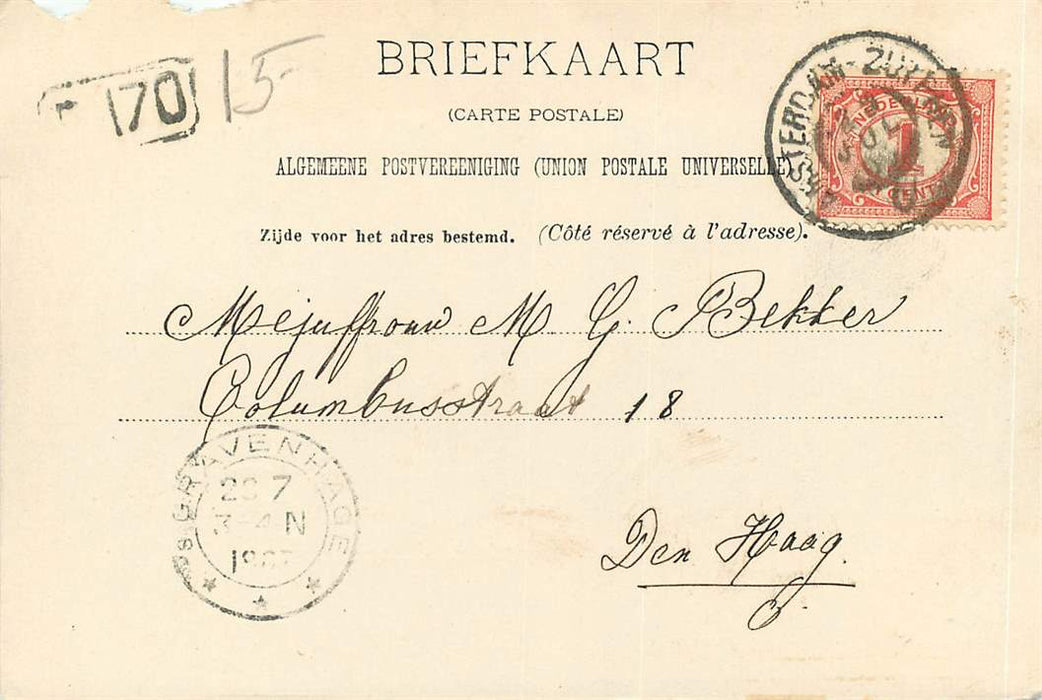 BRIEFKAART
170 15-
(CARTE POSTALE)
ALGEMEENE POSTVEREENIGING (UNION POSTALE UNIVERSELLE).
Zijde voor het adres bestemd. (Côté réservé à l'adresse).
NEDERLAND
1
CENT
Mejuffrouw M. G. Bekker
Columbusstraat 18
Den Haag.
's GRAVENHAGE
3-4 N